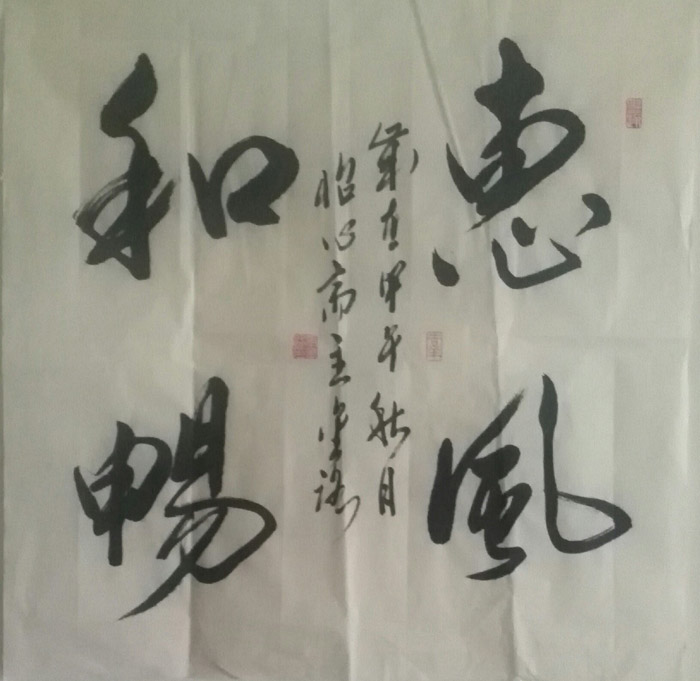 惠風
和暢
歲在甲午秋月
昭心齋主